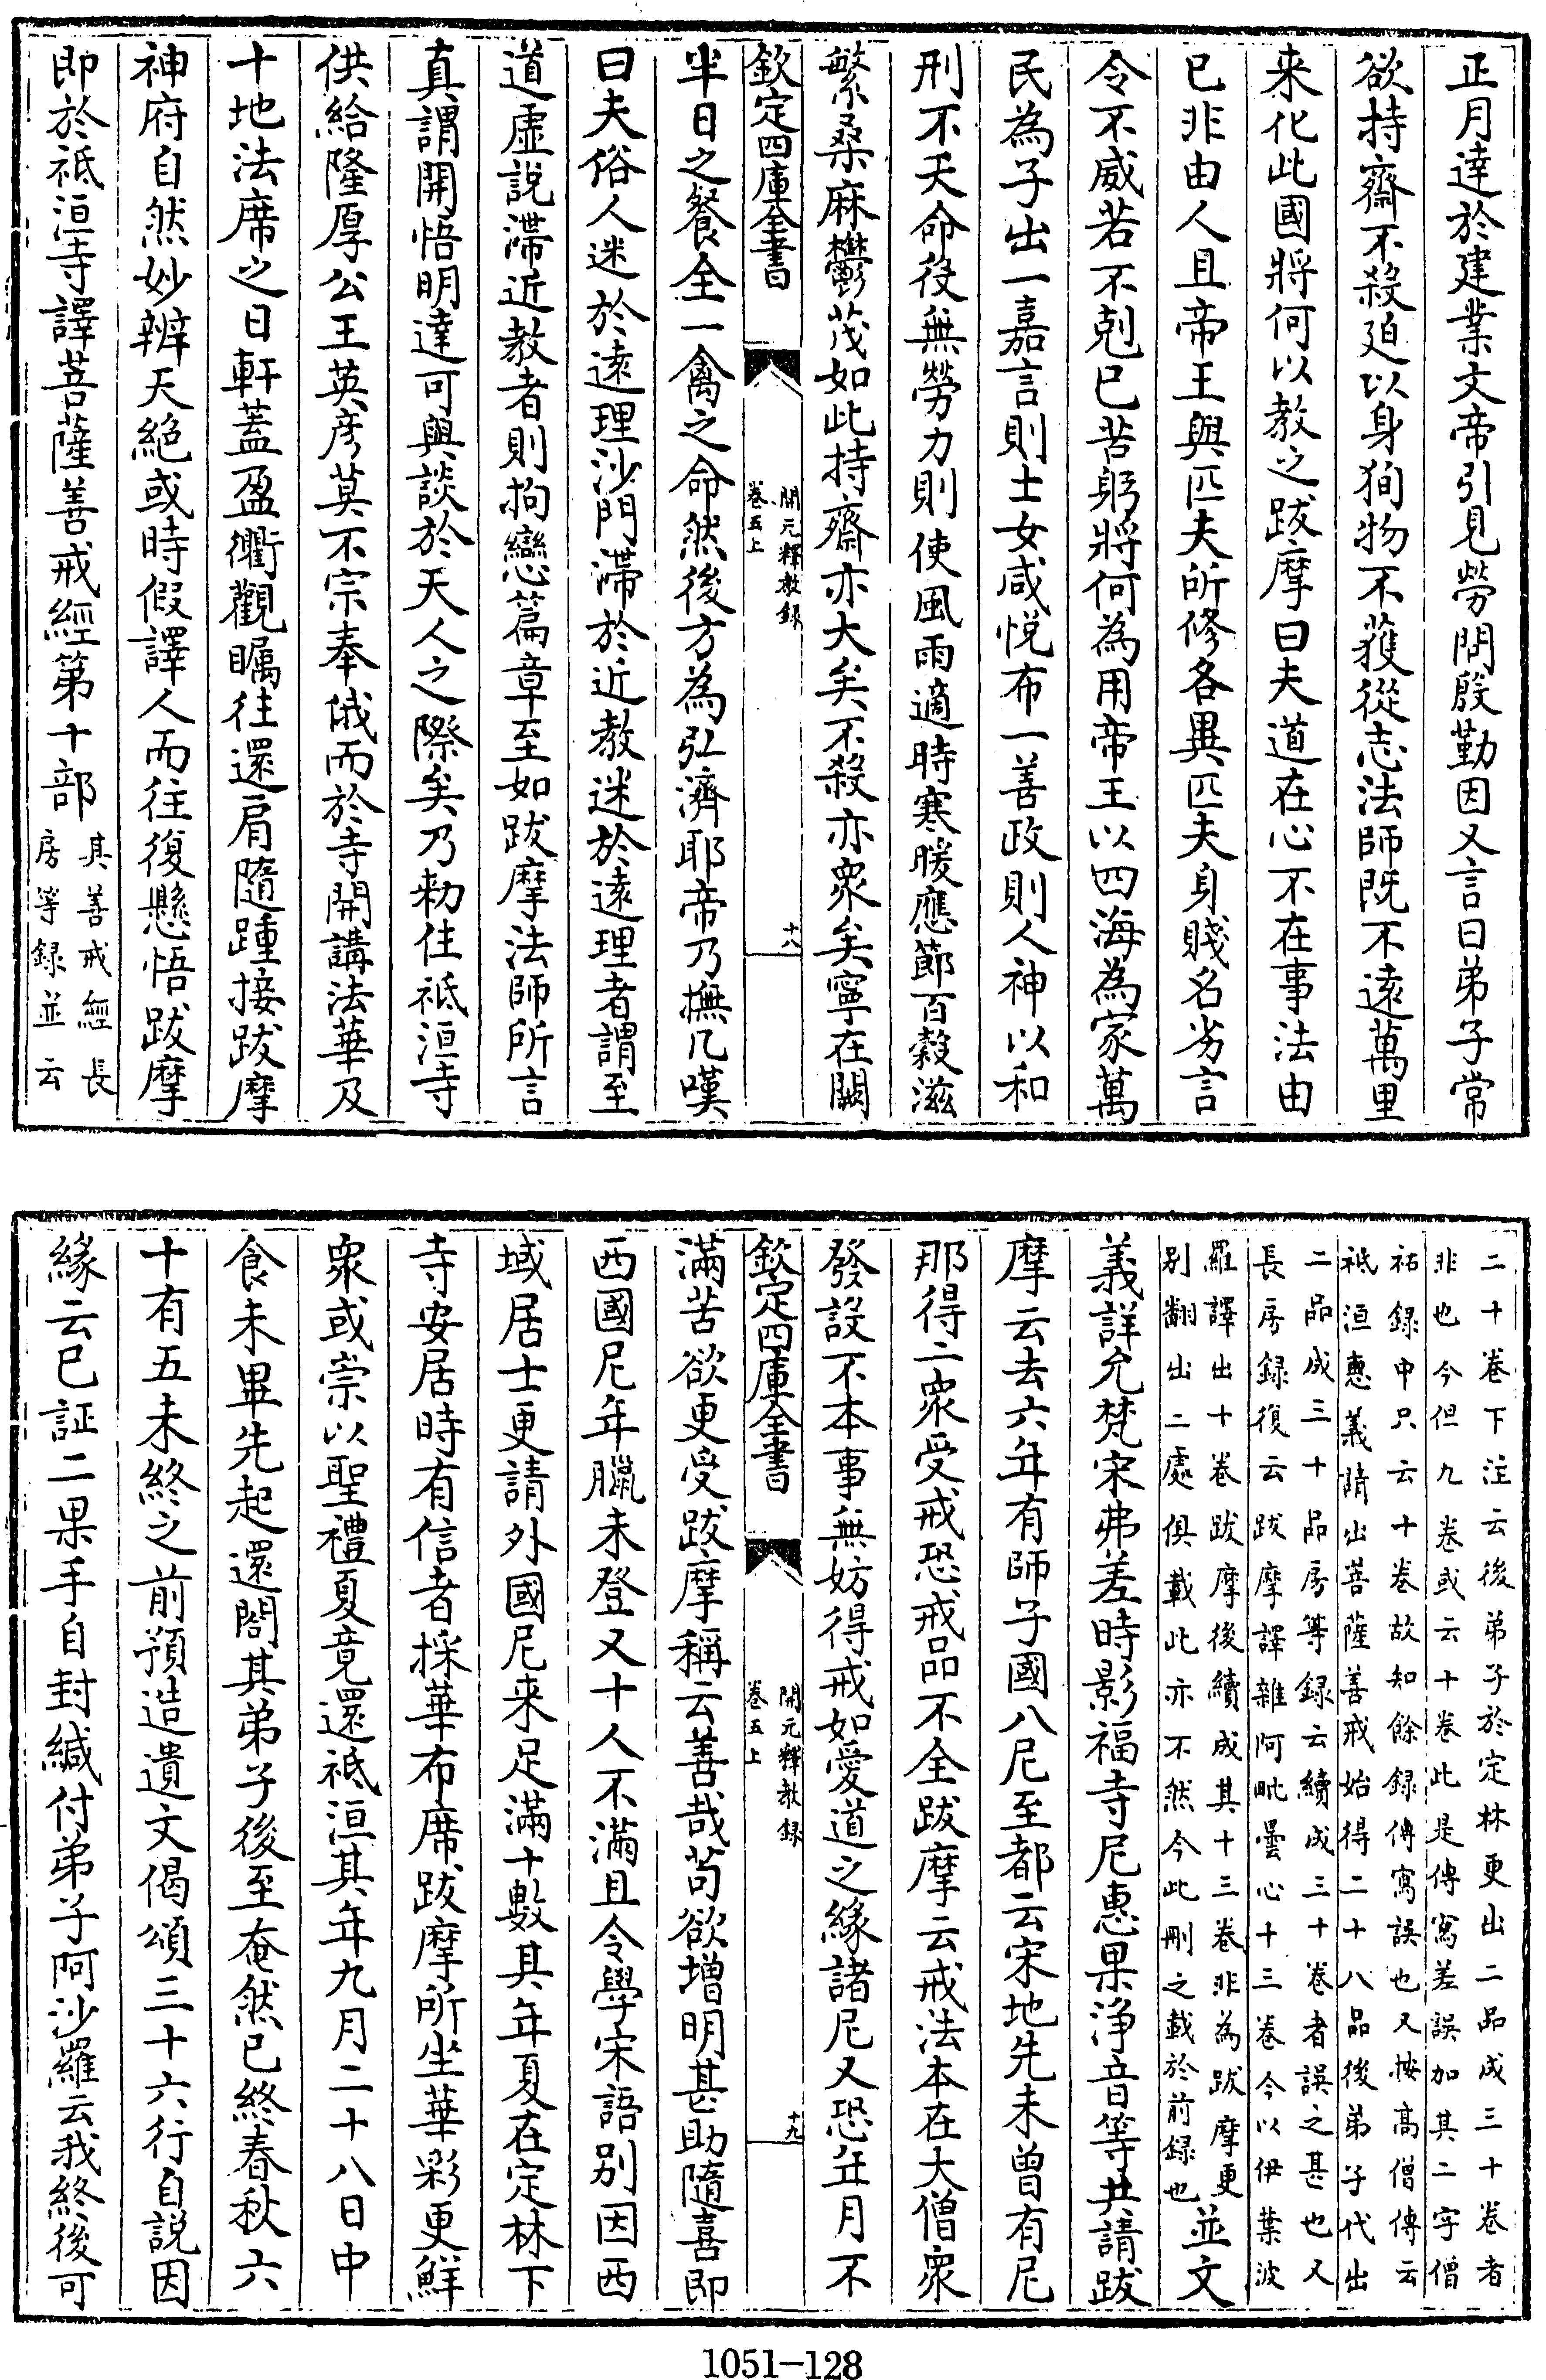 正月達於建業文帝引見勞問殷勤因又言曰弟子常
欲持齋不殺廹以身狥物不獲從志法師既不遠萬里
来化此國將何以教之跋摩曰夫道在心不在事法由
已非由人且帝王與匹夫所修各異匹夫身賤名劣言
令不威若不剋已苦躬將何為用帝王以四海為家萬
民為子出一嘉言則士女咸悦布一善政則人神以和
刑不夭命役無勞力則使風雨適時寒暖應節百穀滋
繁桑麻鬱茂如此持齋亦大矣不殺亦衆矣寧在闕
欽定四庫全書
開元釋教録
卷五上
十八
半日之餐全一禽之命然後方為弘濟耶帝乃撫几嘆
曰夫俗人迷於逺理沙門滯於近教迷於逺理者謂至
道虚説滯近教者則拘戀篇章至如跋摩法師所言
真謂開悟明達可與談於天人之際矣乃勅住祗洹寺
供給隆厚公王英彦莫不宗奉俄而於寺開講法華及
十地法席之日軒蓋盈衢觀矚往還肩隨踵接跋摩
神府自然妙辨天絶或時假譯人而往復懸悟跋摩
即於祗洹寺譯菩薩善戒經第十部
其善戒經長
房等録並云
二十卷下注云後弟子於定林更出二品成三十卷者
非也今但九卷或云十卷此是傳寫差誤加其二字僧
祐録中只云十卷故知餘録傳寫誤也又按高僧傳云
祗洹惠義請出菩薩善戒始得二十八品後弟子代出
二品成三十品房等録云續成三十卷者誤之甚也又
長房録復云跋摩譯雜阿毗曇心十三卷今以伊葉波
羅譯出十卷跋摩後續成其十三卷非為跋摩更
别翻出二處俱載此亦不然今此刪之載於前録也
並文
義詳允梵宋弗差時影福寺尼惠果淨音等共請跋
摩云去六年有師子國八尼至都云宋地先未曾有尼
那得二衆受戒恐戒品不全跋摩云戒法本在大僧衆
發設不本事無妨得戒如愛道之緣諸尼又恐年月不
欽定四庫全書
開元釋教録
卷五上
十九
滿苦欲更受跋摩稱云善哉苟欲增明甚助隨喜即
西國尼年臘未登又十人不滿且令學宋語别因西
域居士更請外國尼来足滿十數其年夏在定林下
寺安居時有信者採華布席跋摩所坐華彩更鮮
衆或崇以聖禮夏竟還祗洹其年九月二十八日中
食未畢先起還閣其弟子後至奄然已終春秋六
十有五未終之前預造遺文偈頌三十六行自説因
緣云已証二果手自封緘付弟子阿沙羅云我終後可
1051-128